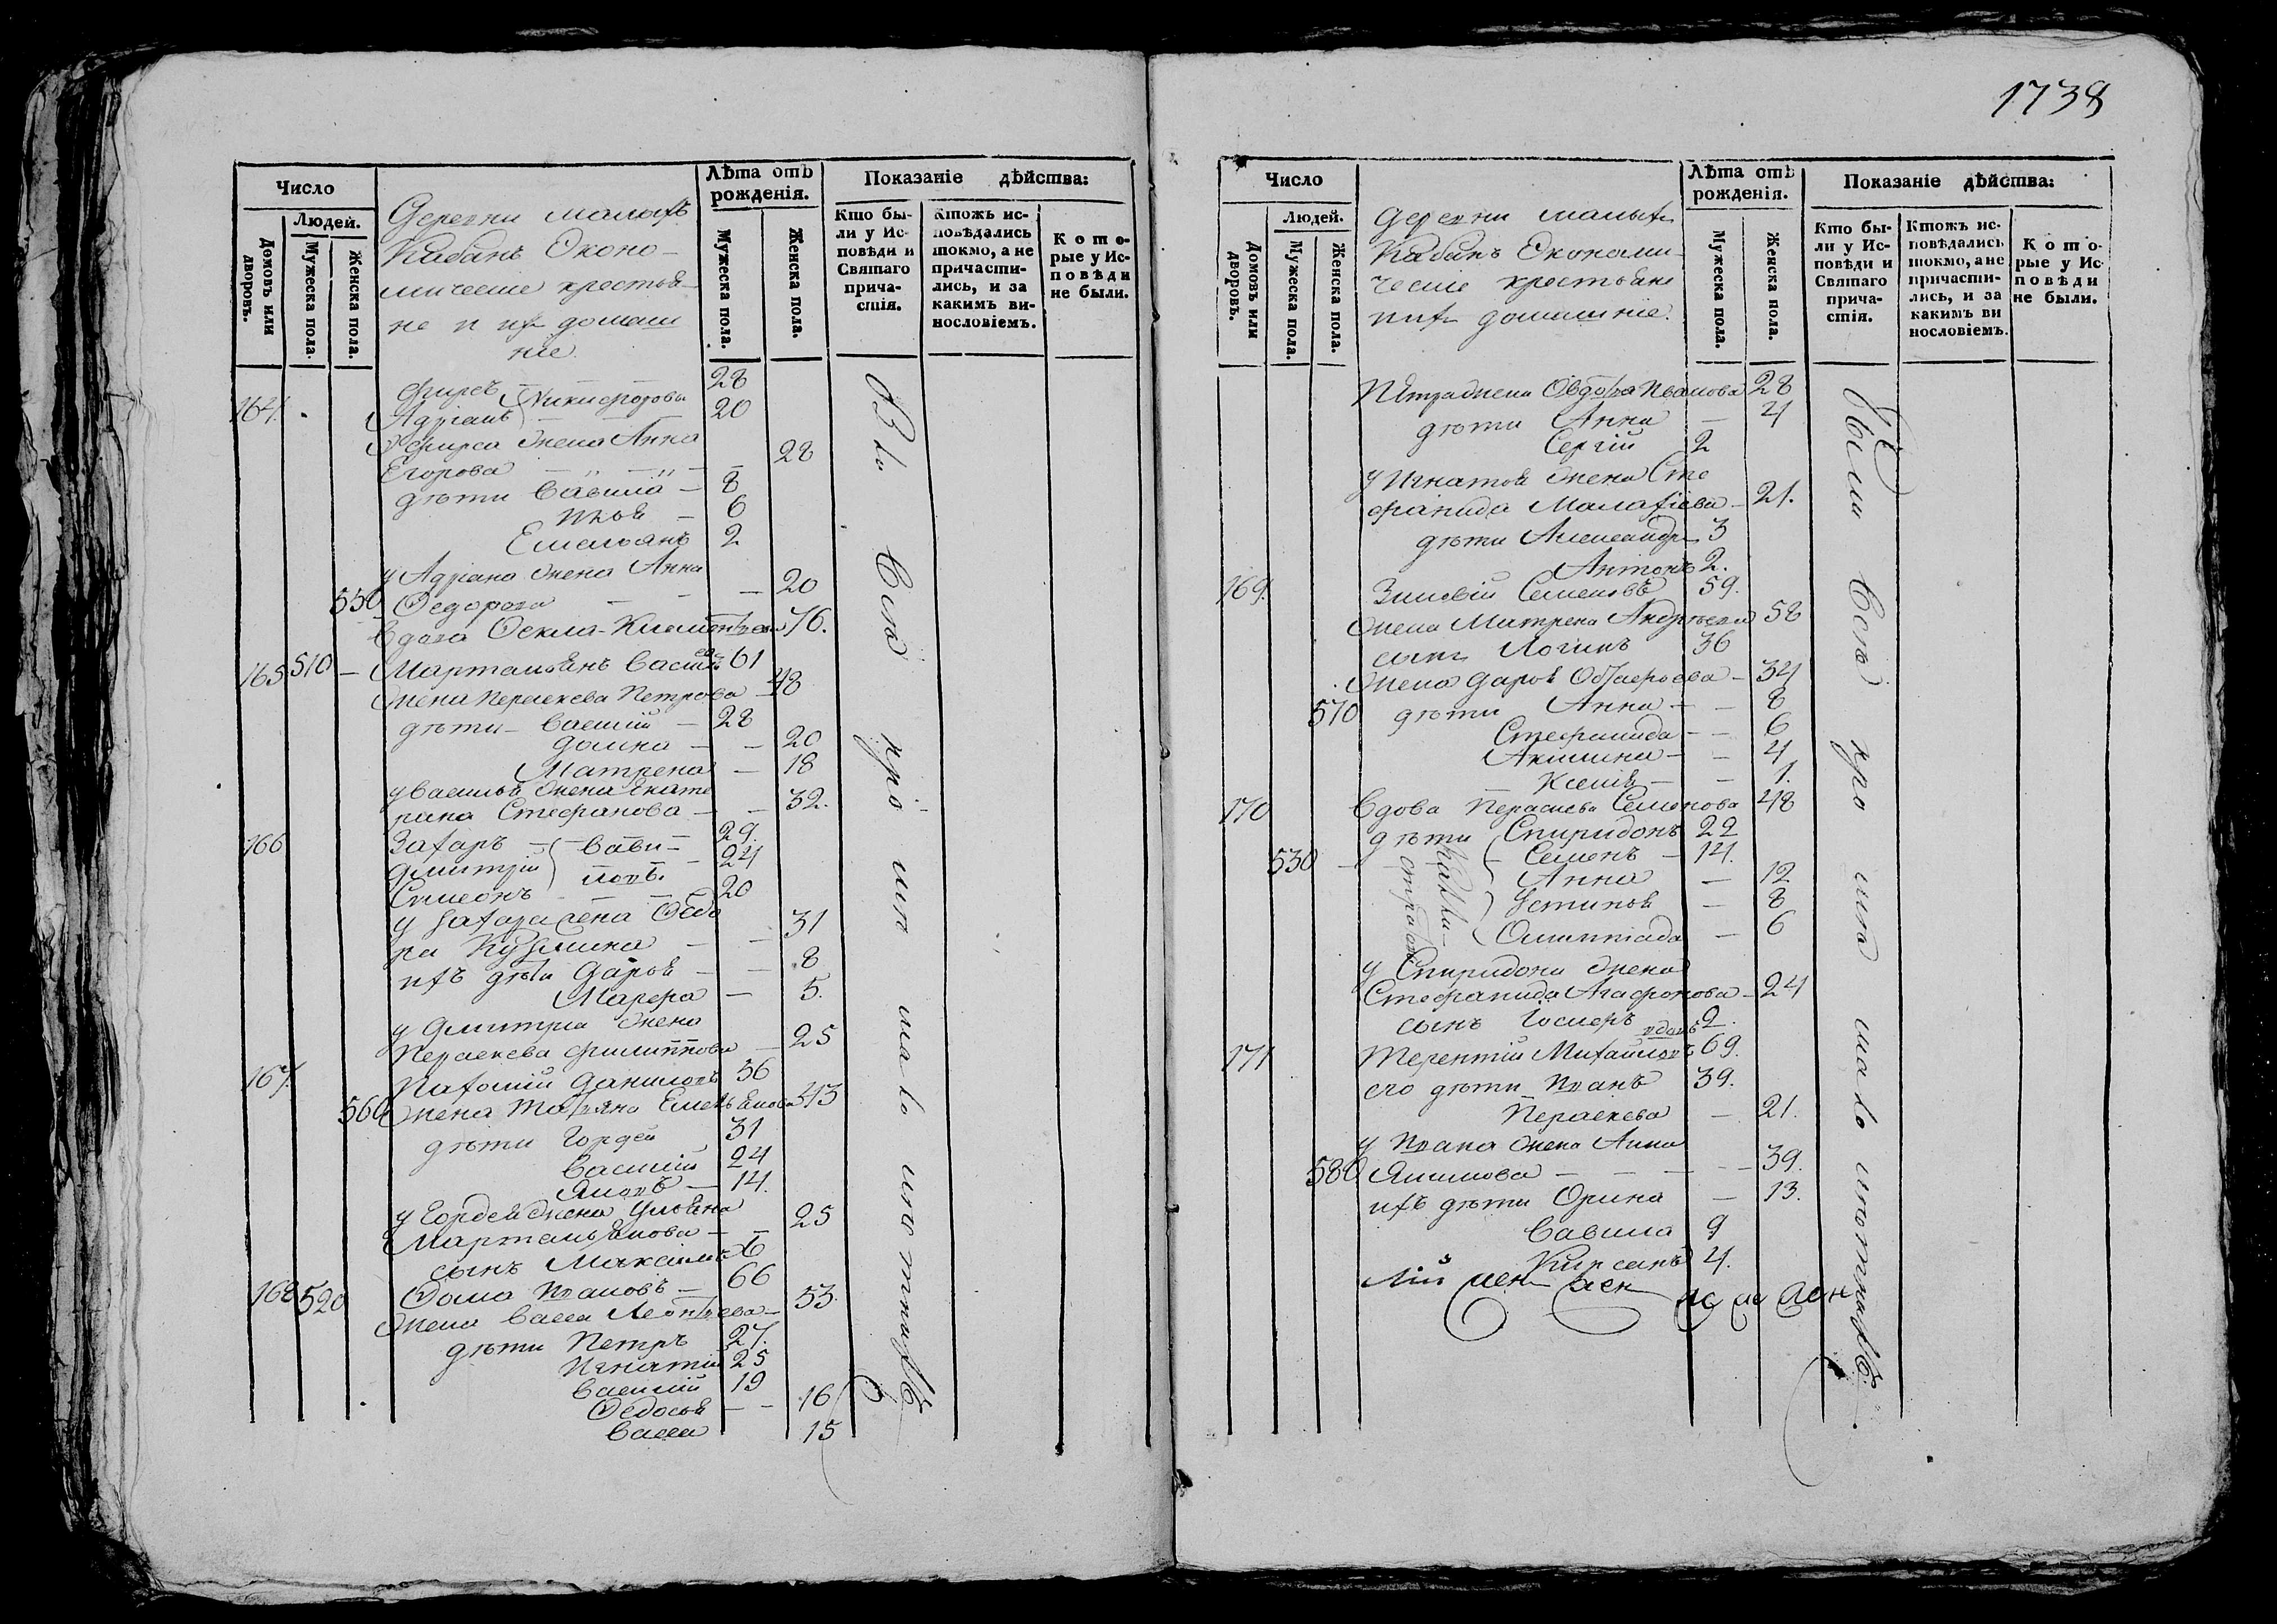 1738
Число
Людей.
Домовъ или дворовъ.
Мужеска пола.
Женска пола.
Деревни малыхъ
Кабанъ Эконо-
мические крестья-
не и ихъ домаш
ние.
Лѣта отъ рожденія.
Мужеска пола.
Женска пола.
Показаніе дѣйства:
Кто бы-
ли у Ис-
повѣди и
Святаго
прича-
стія.
Ктожъ ис-
повѣдались
токмо, а не
причасти-
лись, и за
какимъ ви-
нословіемъ.
Кото-
рые у Ис-
повѣди
не были.
Фирсъ 28
164. Адріанъ Никифоровы 20
У Фирса жена Анна
Егорова 28
дѣти Вавила 8
Яковъ 6
Емельянъ 2
у Адріана жена Анна
550 Федорова 20
вдова Фекла 76.
165 510 Мартемьянъ Васильевъ 61
жена Пераскева Петрова 48
дѣти Василий 28
Домна 20
Матрена 18
у Василья жена Екате
рина Стефанова 32.
166 Захаръ 29.
Дмитрій Вави- 24
Симеонъ ловъ. 20
у Захара жена Федо
ра Кузмина 31
ихъ дѣти Дарья 8
Марфа 5.
у Дмитрия жена
Пераскева Филиппова 25
167. Пахомий Даниловъ 56
560 жена Татьяна Емельянова 43
дѣти Гордей 31
Василий 24
Яковъ 14.
у Гордея жена Ульяна
Мартемьянова 25
сынъ Максимъ 6
168 520 Фома Ивановъ 66
жена Васса Леонтьева 53.
дѣти Петръ 27.
Игнатий 25
Василий 19
Федосья 16
Васса 15
Число
Людей.
Домовъ или дворовъ.
Мужеска пола.
Женска пола.
Деревни малыхъ
Кабанъ Экономи-
ческие крестьяне
и ихъ домашние.
Лѣта отъ рожденія.
Мужеска пола.
Женска пола.
Показаніе дѣйства:
Кто бы-
ли у Ис-
повѣди и
Святаго
прича-
стія.
Ктожъ ис-
повѣдались
токмо, а не
причасти-
лись, и за
какимъ ви
нословіемъ.
Кото-
рые у Ис-
повѣди
не были.
Петра жена Овдотья Иванова 28
дѣти Анна 4
Сергій 2
у Игнатья жена Сте
фанида Малафіева 21.
дѣти Александръ 3
Антонъ 2.
169. Зиновій Семеновъ 59.
жена Матрена Андрѣева 58
сынъ Логинъ 36
жена Дарья 34
570 дѣти Анна 8
Стефанида 6
Акилина 4
Ксенія 1.
170 вдова Пераскева Семенова 48
дѣти Спиридонъ 22
530 Семенъ 14.
Анна 12
Устинья 8
Олимпіада 6
у Спиридона жена
Стефанида Агафонова 24
сынъ 2.
171 Терентій Михайловъ вдовъ 69.
его дѣти Иванъ 39.
Пераскева 21.
у Ивана жена Анна
580 Якимова 39.
ихъ дѣти Орина 13.
Вавила 9
Кирсанъ 4.